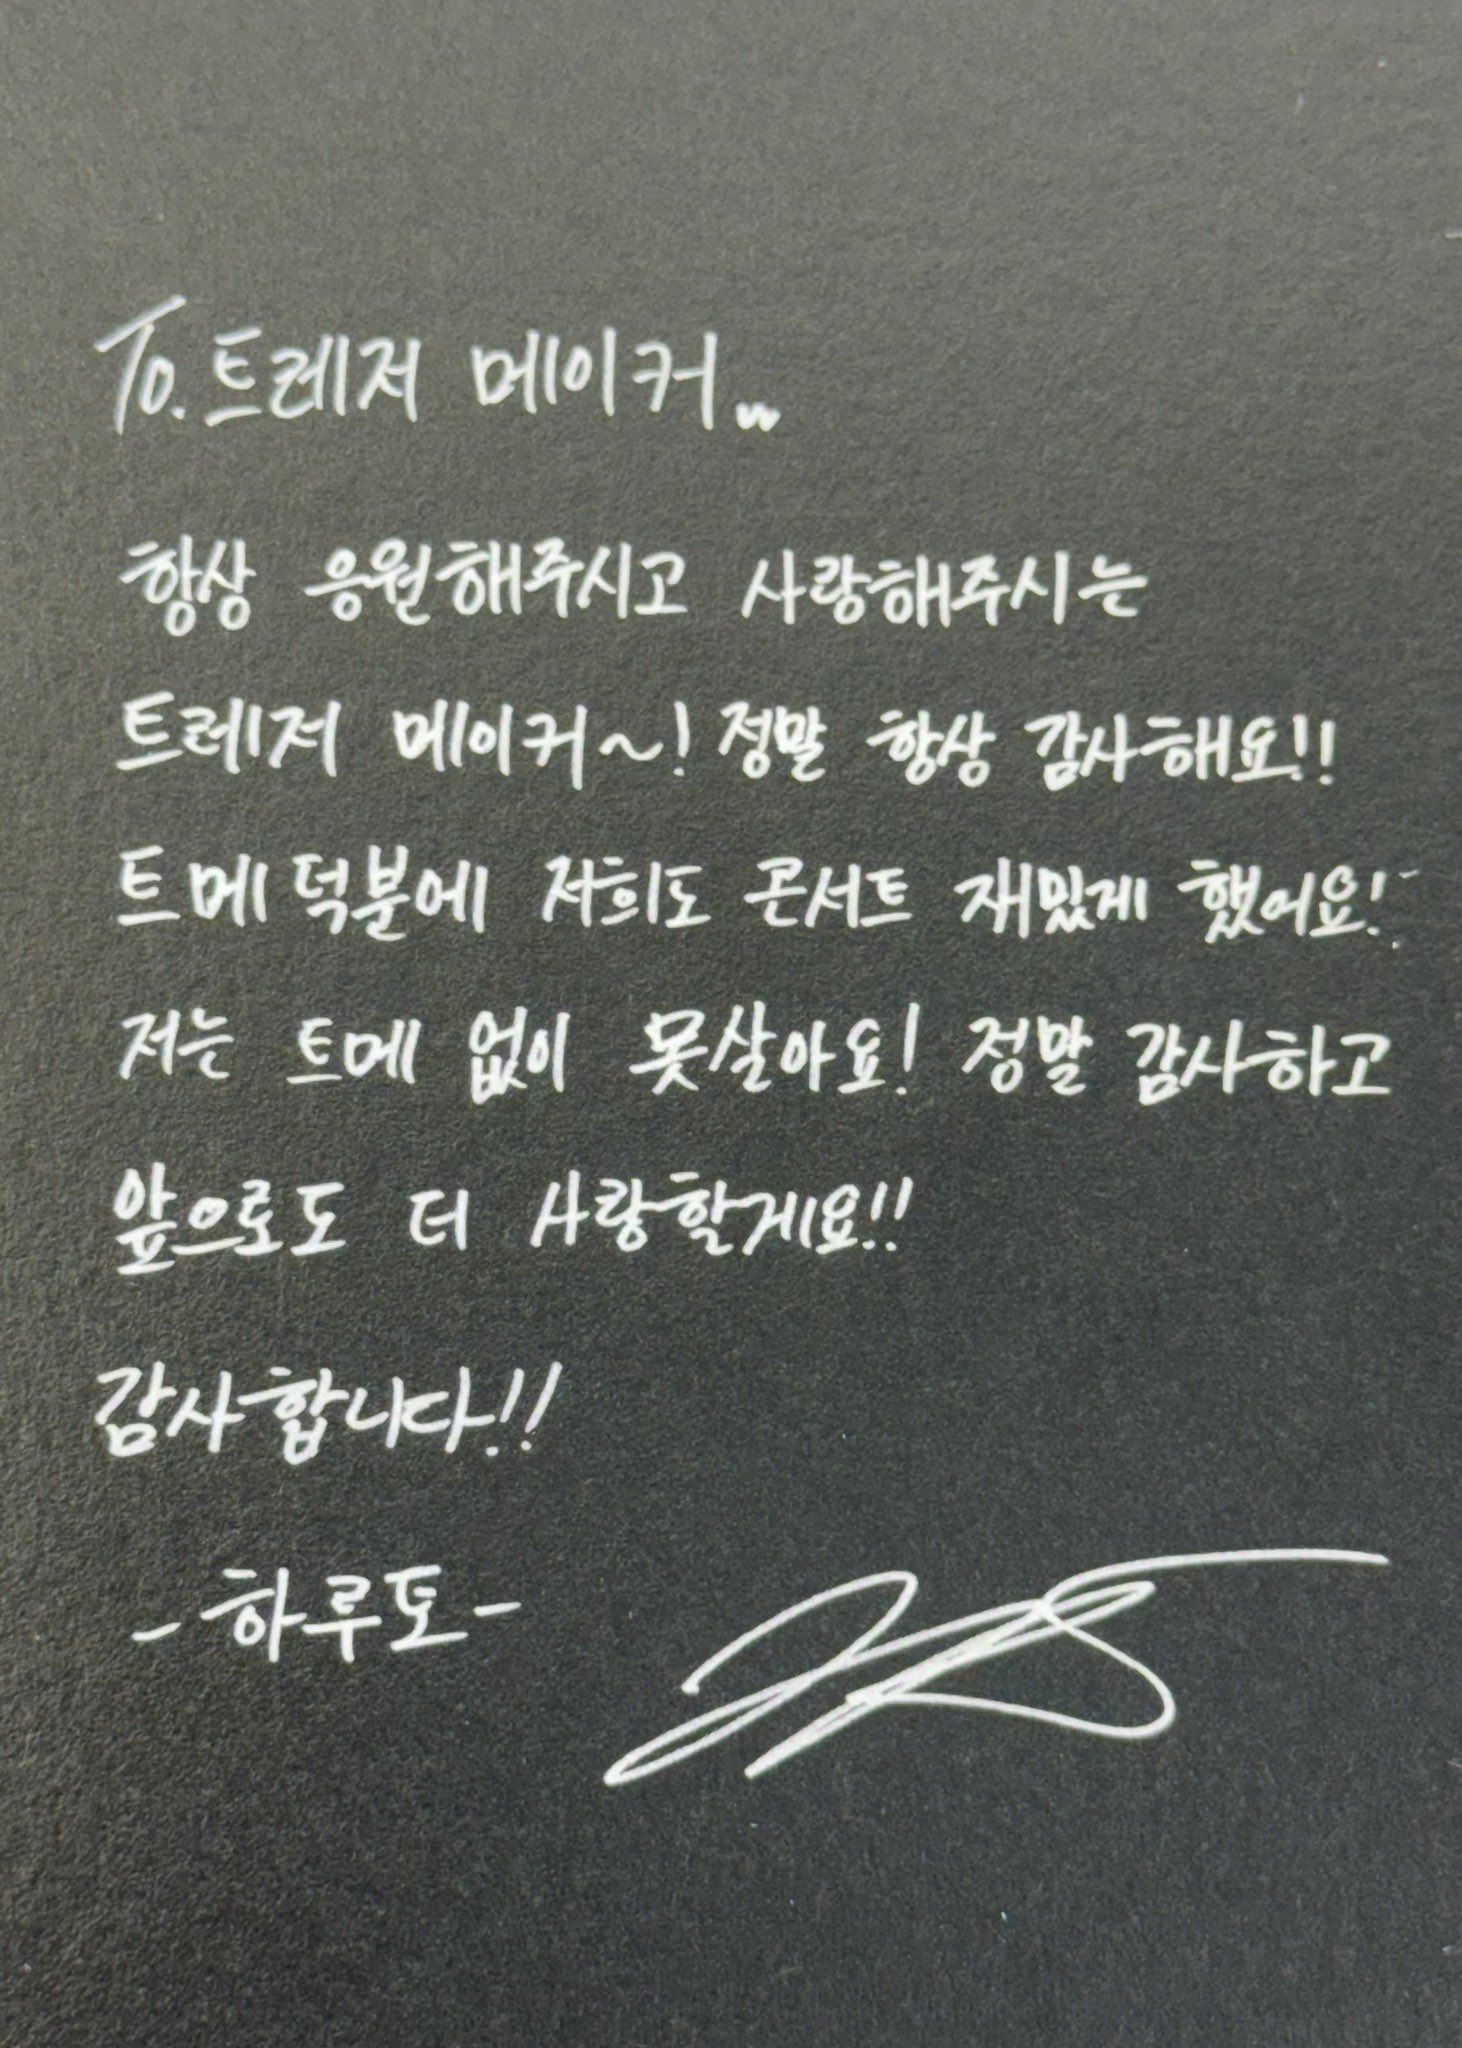 To. 트레저 메이커..
항상 응원해주시고 사랑해주시는
트레저 메이커~! 정말 항상 감사해요!!
트메 덕분에 저희도 콘서트 재밌게 했어요!!
저는 트메 없이 못살아요! 정말 감사하고
앞으로도 더 사랑할게요!!
감사합니다!!
-하루토-